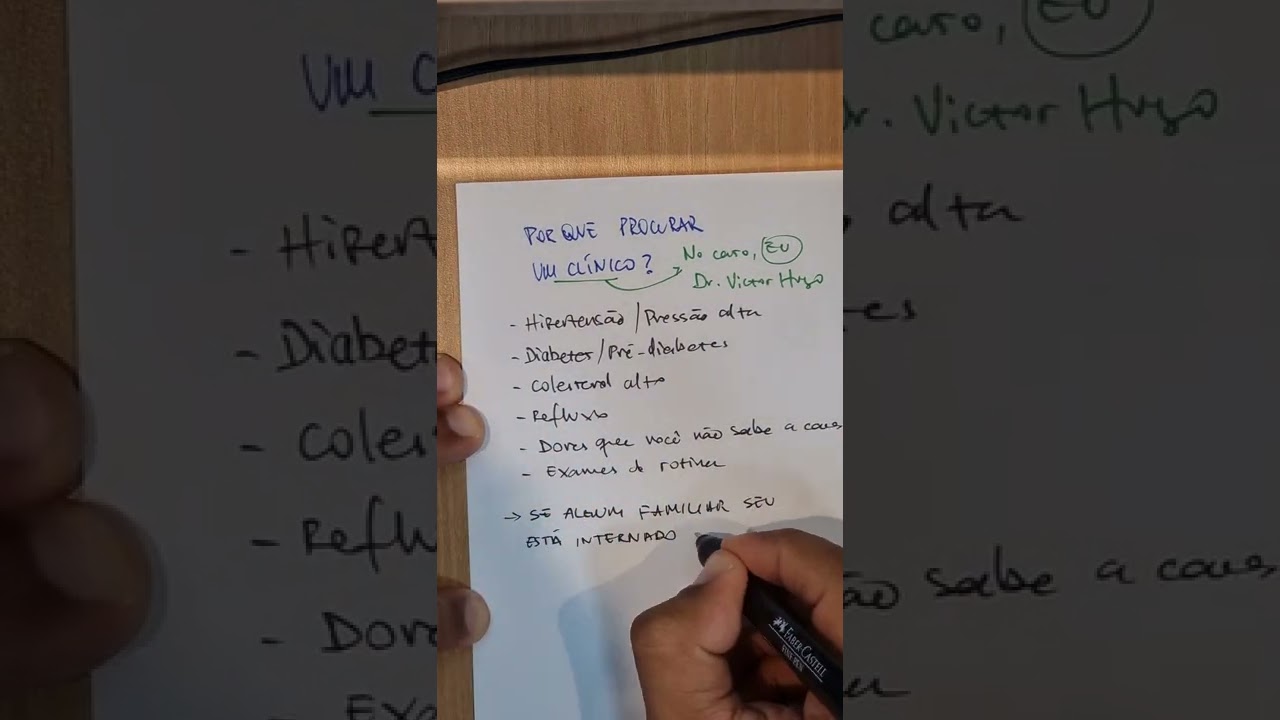 POR QUE PROCURAR
UM CLÍNICO?
No caso, EU
Dr. Victor Hugo
- Hipertensão / Pressão alta
- Diabetes / Pré-diabetes
- Colesterol alto
- Refluxo
- Dores que você não sabe a caus
- Exames de rotina
→ SE ALGUM FAMILIAR SEU
ESTÁ INTERNADO
FABER-CASTELL